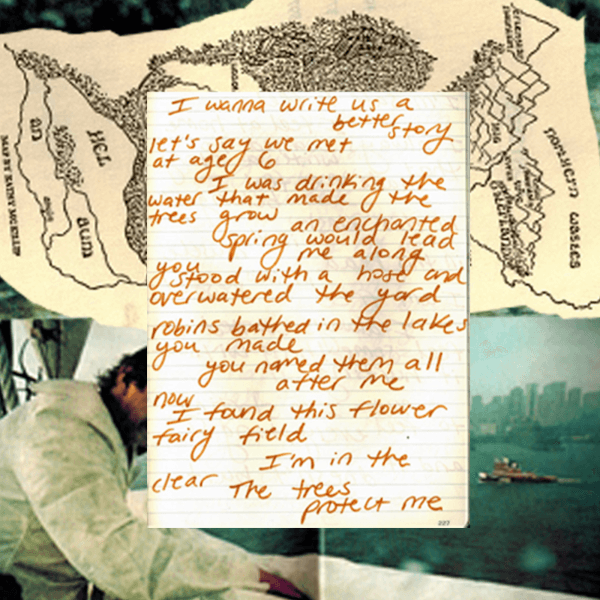 I wanna write us a
better story
let's say we met
at age 6
I was drinking the
water that made the
trees grow
an enchanted
spring would lead
me along
you stood with a hose and
overwatered the yard
robins bathed in the lakes
you made
you named them all
after me
now
I found this flower
fairy field
I'm in the
clear
The trees
protect me
227
northern wastes